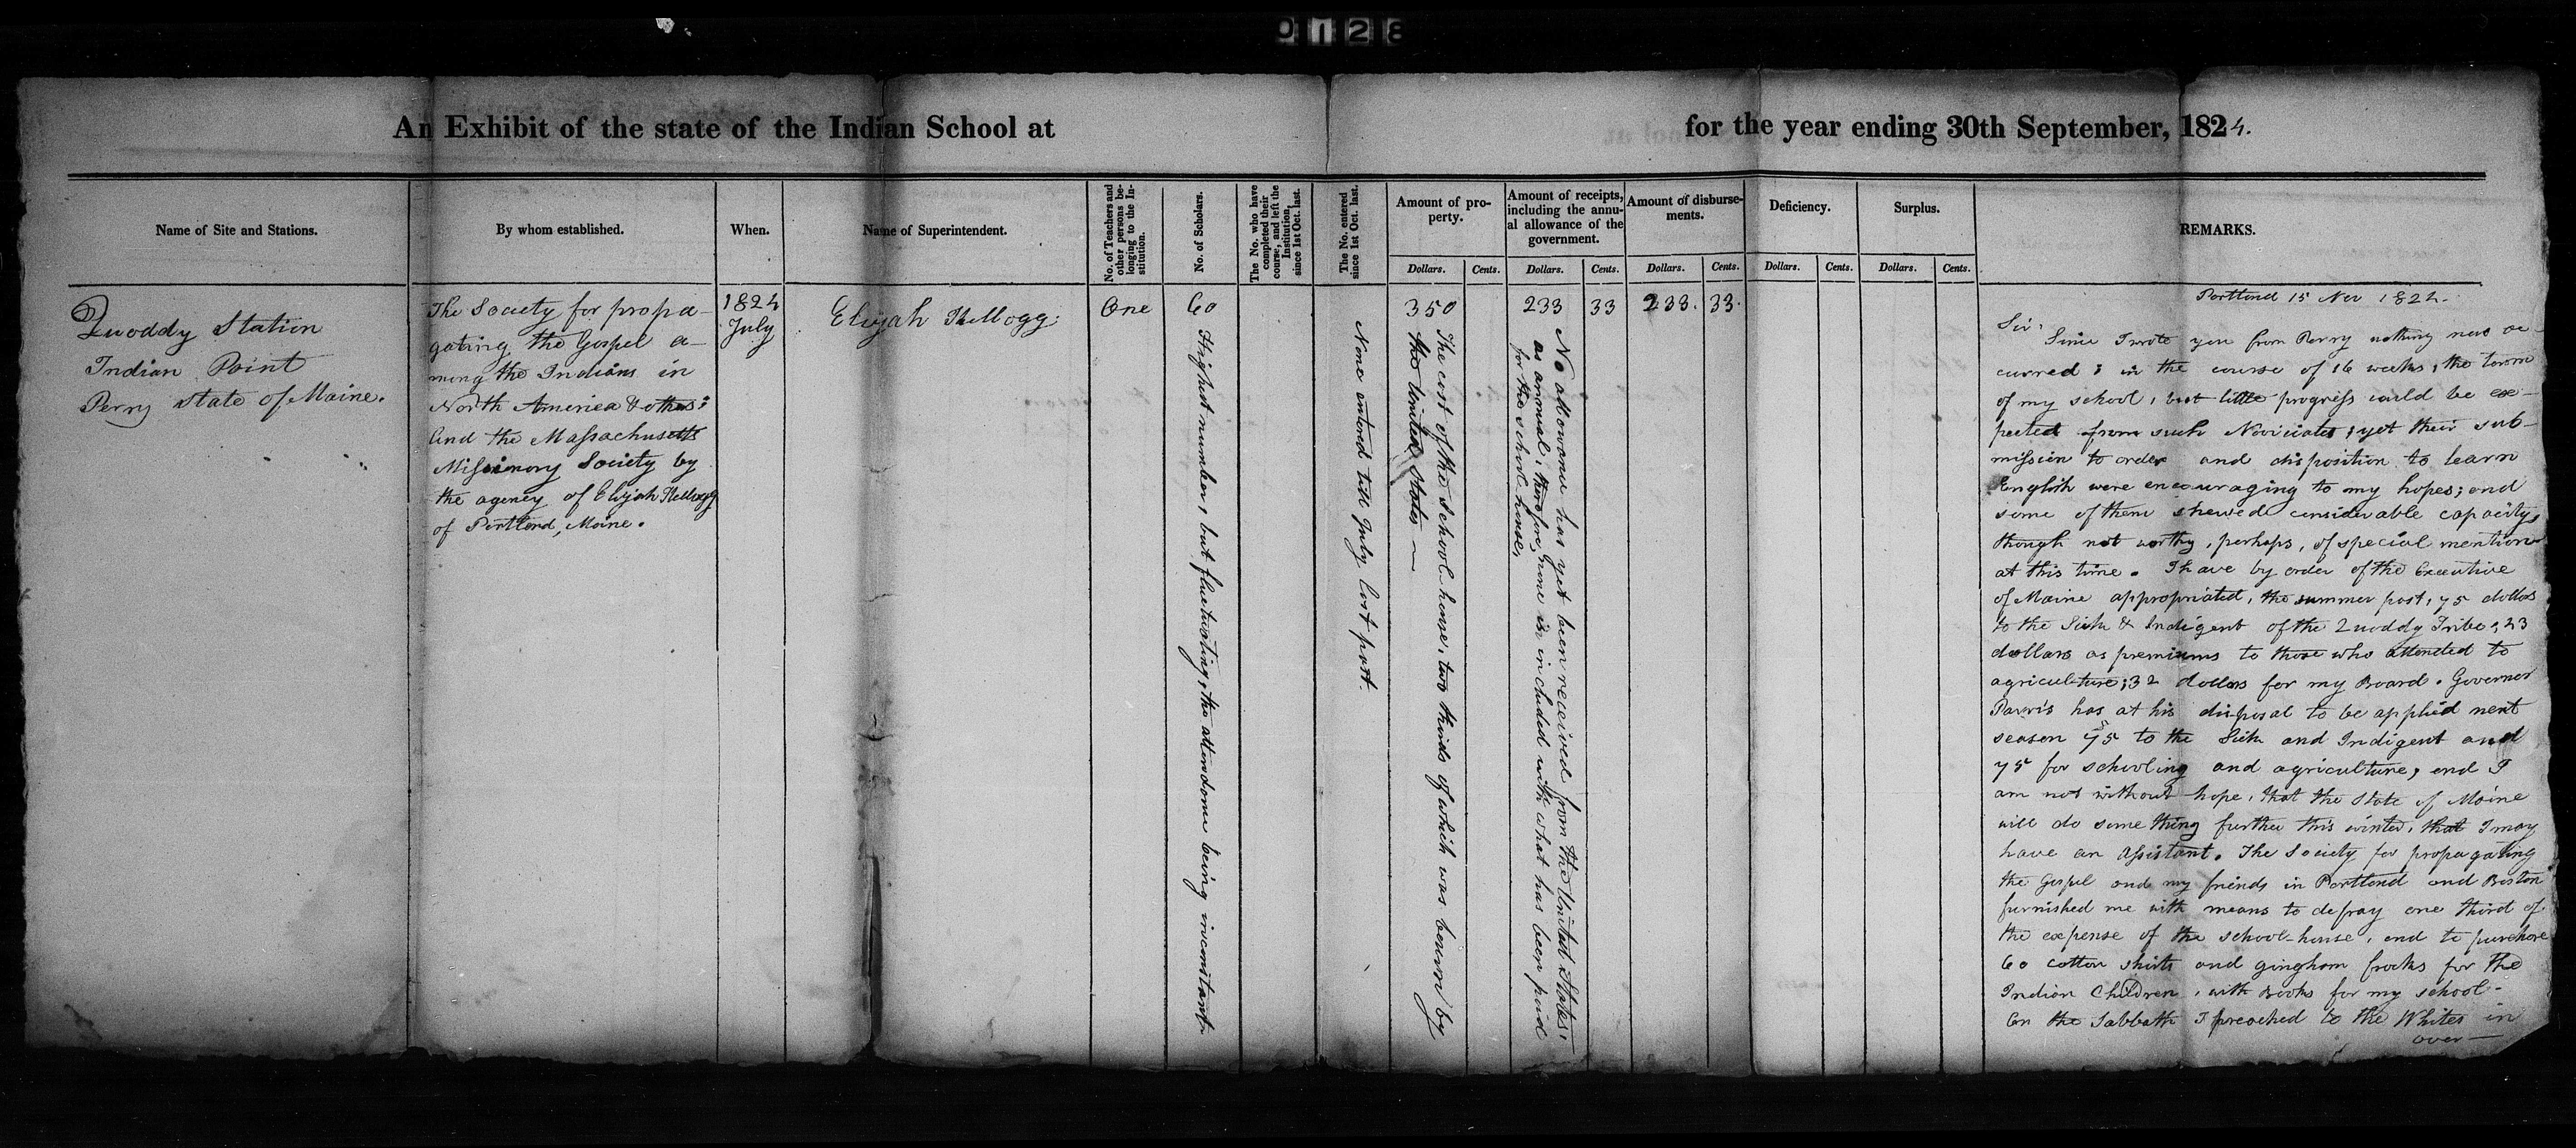 0128
An Exhibit of the state of the Indian School at for the year ending 30th September, 1824.
Name of Site and Stations.
By whom established.
When.
Name of Superintendent.
No. of Teachers and
other persons be-
longing to the In-
stitution.
No. of Scholars.
The No. who have
completed their
course, and left the
Institution,
since 1st Oct. last.
The No. entered
since 1st Oct. last.
Amount of pro-
perty.
Amount of receipts,
including the annu-
al allowance of the
government.
Amount of disburse-
ments.
Deficiency.
Surplus.
REMARKS.
Dollars. Cents. Dollars. Cents. Dollars. Cents. Dollars. Cents. Dollars. Cents.
Quoddy Station
Indian Point
Perry State of Maine.
The Society for propa-
gating the Gospel a-
mong the Indians in
North America & others:
and the Massachusetts
Missionary Society by
the agency of Elijah Kellogg
of Portland, Maine.
1824
July
Elijah Kellogg.
One
60
Highest number, but fluctuating, the attendance being inconstant.
None entered till July last past.
350
The cost of the School-house, two thirds of which was bourn by
the United States —
233 33
No allowance has yet been received from the United States,
as annual, therefore, none is included with what has been paid
for the school house.
233. 33.
Portland 15 Nov 1824.
Sir,
Since I wrote you from Perry nothing new oc-
curred: in the course of 16 weeks, the term
of my school, but little progress could be ex-
pected from such Noviciates; yet their sub-
mission to order and disposition to learn
English were encouraging to my hopes; and
some of them shewed considerable capacity,
though not worthy, perhaps, of special mention
at this time. I have by order of the Executive
of Maine appropriated, the summer past, 75 dollars
to the Sick & Indigent of the Quoddy Tribe, 23
dollars as premiums to those who attended to
agriculture; 32 dollars for my Board. Governor
Parris has at his disposal to be applied next
season 75 to the Sick and Indigent and
75 for schooling and agriculture, and I
am not without hope, that the State of Maine
will do something further this winter, that I may
have an Assistant. The Society for propagating
the Gospel and my friends in Portland and Boston
furnished me with means to defray one third of
the expense of the school-house, and to purchase
60 cotton shirts and gingham frocks for the
Indian Children, with Books for my school-
On the Sabbath I preached to the Whites in
over —